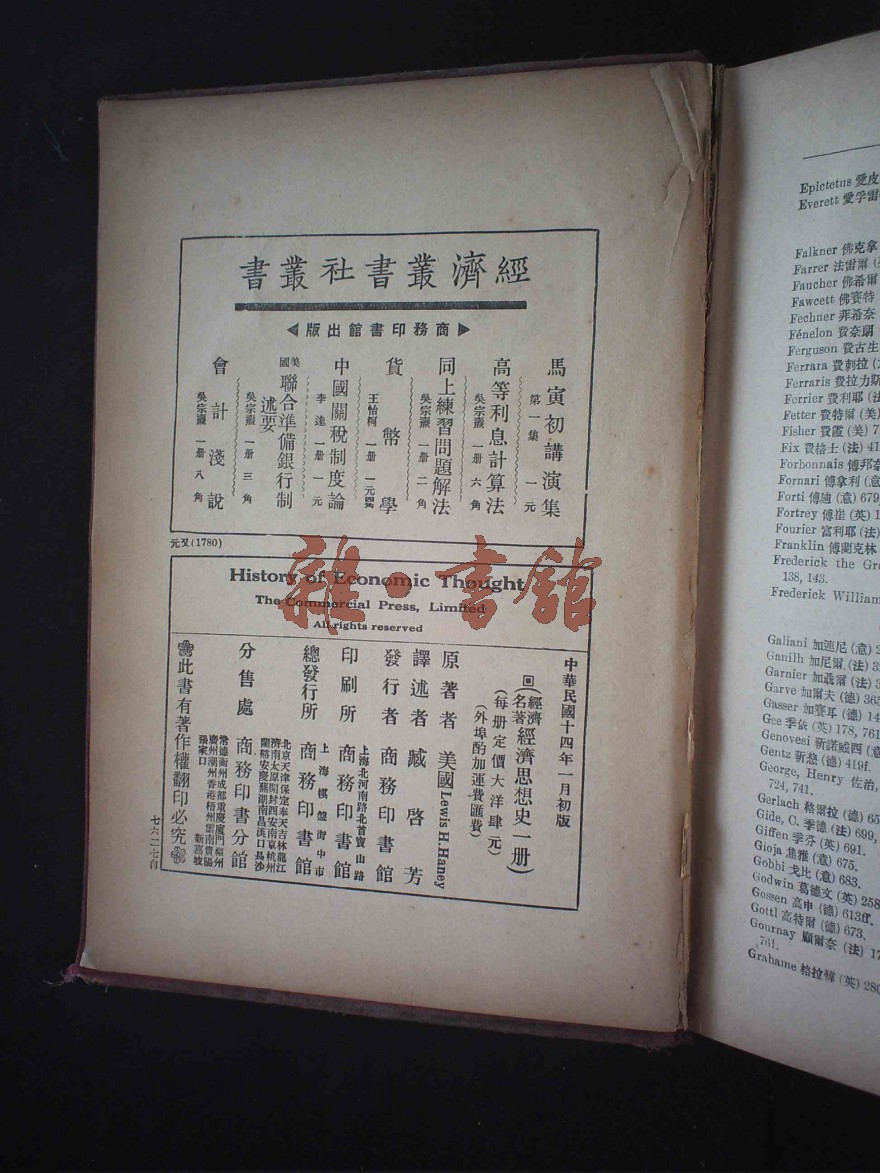 經濟叢書社叢書
商務印書館出版
馬寅初講演集
第一集 一元
高等利息計算法
吳宗燾 一册 六角
同上練習問題解法
吳宗燾 一册 二角
貨幣學
王怡柯 一册 一元
中國關稅制度論
李達 一册 一元
美國聯合準備銀行制述要
吳宗燾 一册 三角
會計淺說
吳宗燾 一册 八角
元又(1780)
History of Economic Thought
The Commercial Press, Limited
All rights reserved
中華民國十四年一月初版
(經濟名著 經濟思想史一册)
(每册定價大洋肆元)
(外埠酌加運費匯費)
原著者 美國Lewis H. Haney
譯述者 臧啓芳
發行者 商務印書館
印刷所 上海北河南路北首寶山路 商務印書館
總發行所 上海棋盤街中市 商務印書館
分售處 商務印書分館
北京天津保定奉天吉林龍江
濟南太原開封西安南京杭州
蘭谿安慶蕪湖南昌漢口長沙
常德衡州成都重慶廈門福州
廣州潮州香港梧州雲南貴陽
張家口 新嘉坡
此書有著作權翻印必究
七六二七自
雜·書館
Epictetus 愛皮
Everett 愛孚雷
Falkner 佛克拿
Farrer 法雷爾
Faucher 佛希爾
Fawcett 佛賽特
Fechner 菲希奈
Fénelon 費奈朗
Ferguson 費古生
Ferrara 費剌拉
Ferraris 費拉力斯
Ferrier 費利耶 (法
Fetter 費特爾 (美)
Fisher 費霞 (美) 7
Fix 費格士 (法) 41
Forbonnais 傅邦奈
Fornari 傅拿利 (意
Forti 傅迪 (意) 679,
Fortrey 傅崖 (英) 1
Fourier 富利耶 (法)
Franklin 傅蘭克林
Frederick the Gr
138, 143.
Frederick William
Galiani 加連尼 (意) 2
Ganilh 加尼爾 (法) 3
Garnier 加聶爾 (法) 3
Garve 加爾夫 (德) 365
Gasser 加賽耳 (德) 14
Gee 季依 (英) 178, 761
Genovesi 新諾威西 (意
Gentz 新慈 (德) 419f.
George, Henry 佐治,
724, 741.
Gerlach 格爾拉 (德) 65
Gide, C. 季德 (法) 699,
Giffen 季芬 (英) 691.
Gioja 焦雅 (意) 675.
Gobbi 戈比 (意) 683.
Godwin 葛德文 (英) 258
Gossen 高申 (德) 613ff.
Gottl 高特爾 (德) 673.
Gournay 顧爾奈 (法) 17
761.
Grahame 格拉幃 (英) 280